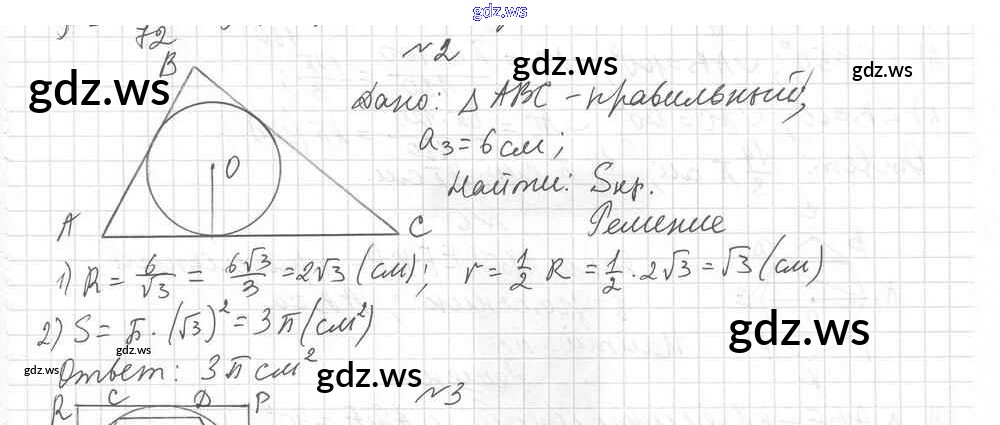 gdz.ws
72
№2
B
gdz.ws
gdz.ws
gdz.ws
Дано: △ABC - правильный,
a₃ = 6 см;
O
Найти: Sкр.
A
C
Решение
1) R = 6/√3 = 6√3/3 = 2√3 (см); r = 1/2 R = 1/2 · 2√3 = √3 (см)
2) S = π · (√3)² = 3π (см²)
gdz.ws
gdz.ws
gdz.ws
Ответ: 3π см²
gdz.ws
№3
R C D P